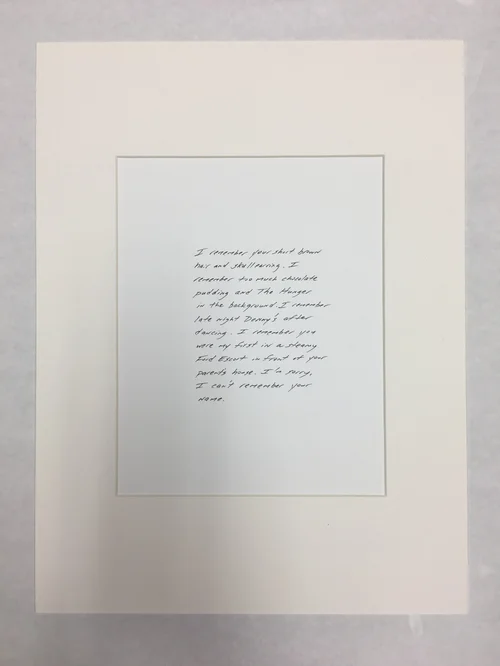 I remember your short brown
hair and skull earring. I
remember too much chocolate
pudding and The Hunger
in the background. I remember
late night Denny's after
dancing. I remember you
were my first in a steamy
Ford Escort in front of your
parents house. I'm sorry,
I can't remember your
name.